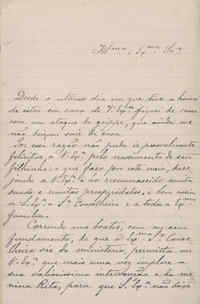 Illmo. Exmo. Snr.
Desde o ultimo dia em que tive a honra
de estar em casa de V. Exa. fiquei de cama
com um ataque de grippe, que ainda me
não deixou sair de casa.
Por essa razão não pude ir pessoalmente
felicitar a V. Exa. pelo nascimento de seu
filhinho: o que faço por este meio, dese-
jando a V. Exa. e ao recemnascido muita
saude e muitas prosperidades, e bem assim
a Sua Exa. a Snra. e a toda a Exma.
familia.
Correndo uns boatos, com ou sem
fundamento, de que a Exma. Snra.
sae do ministerio, permitta-me
V. Exa. que mais uma vez implore a
sua valiosissima intervenção e da me-
nina Rita, para que S. Exa. não saia